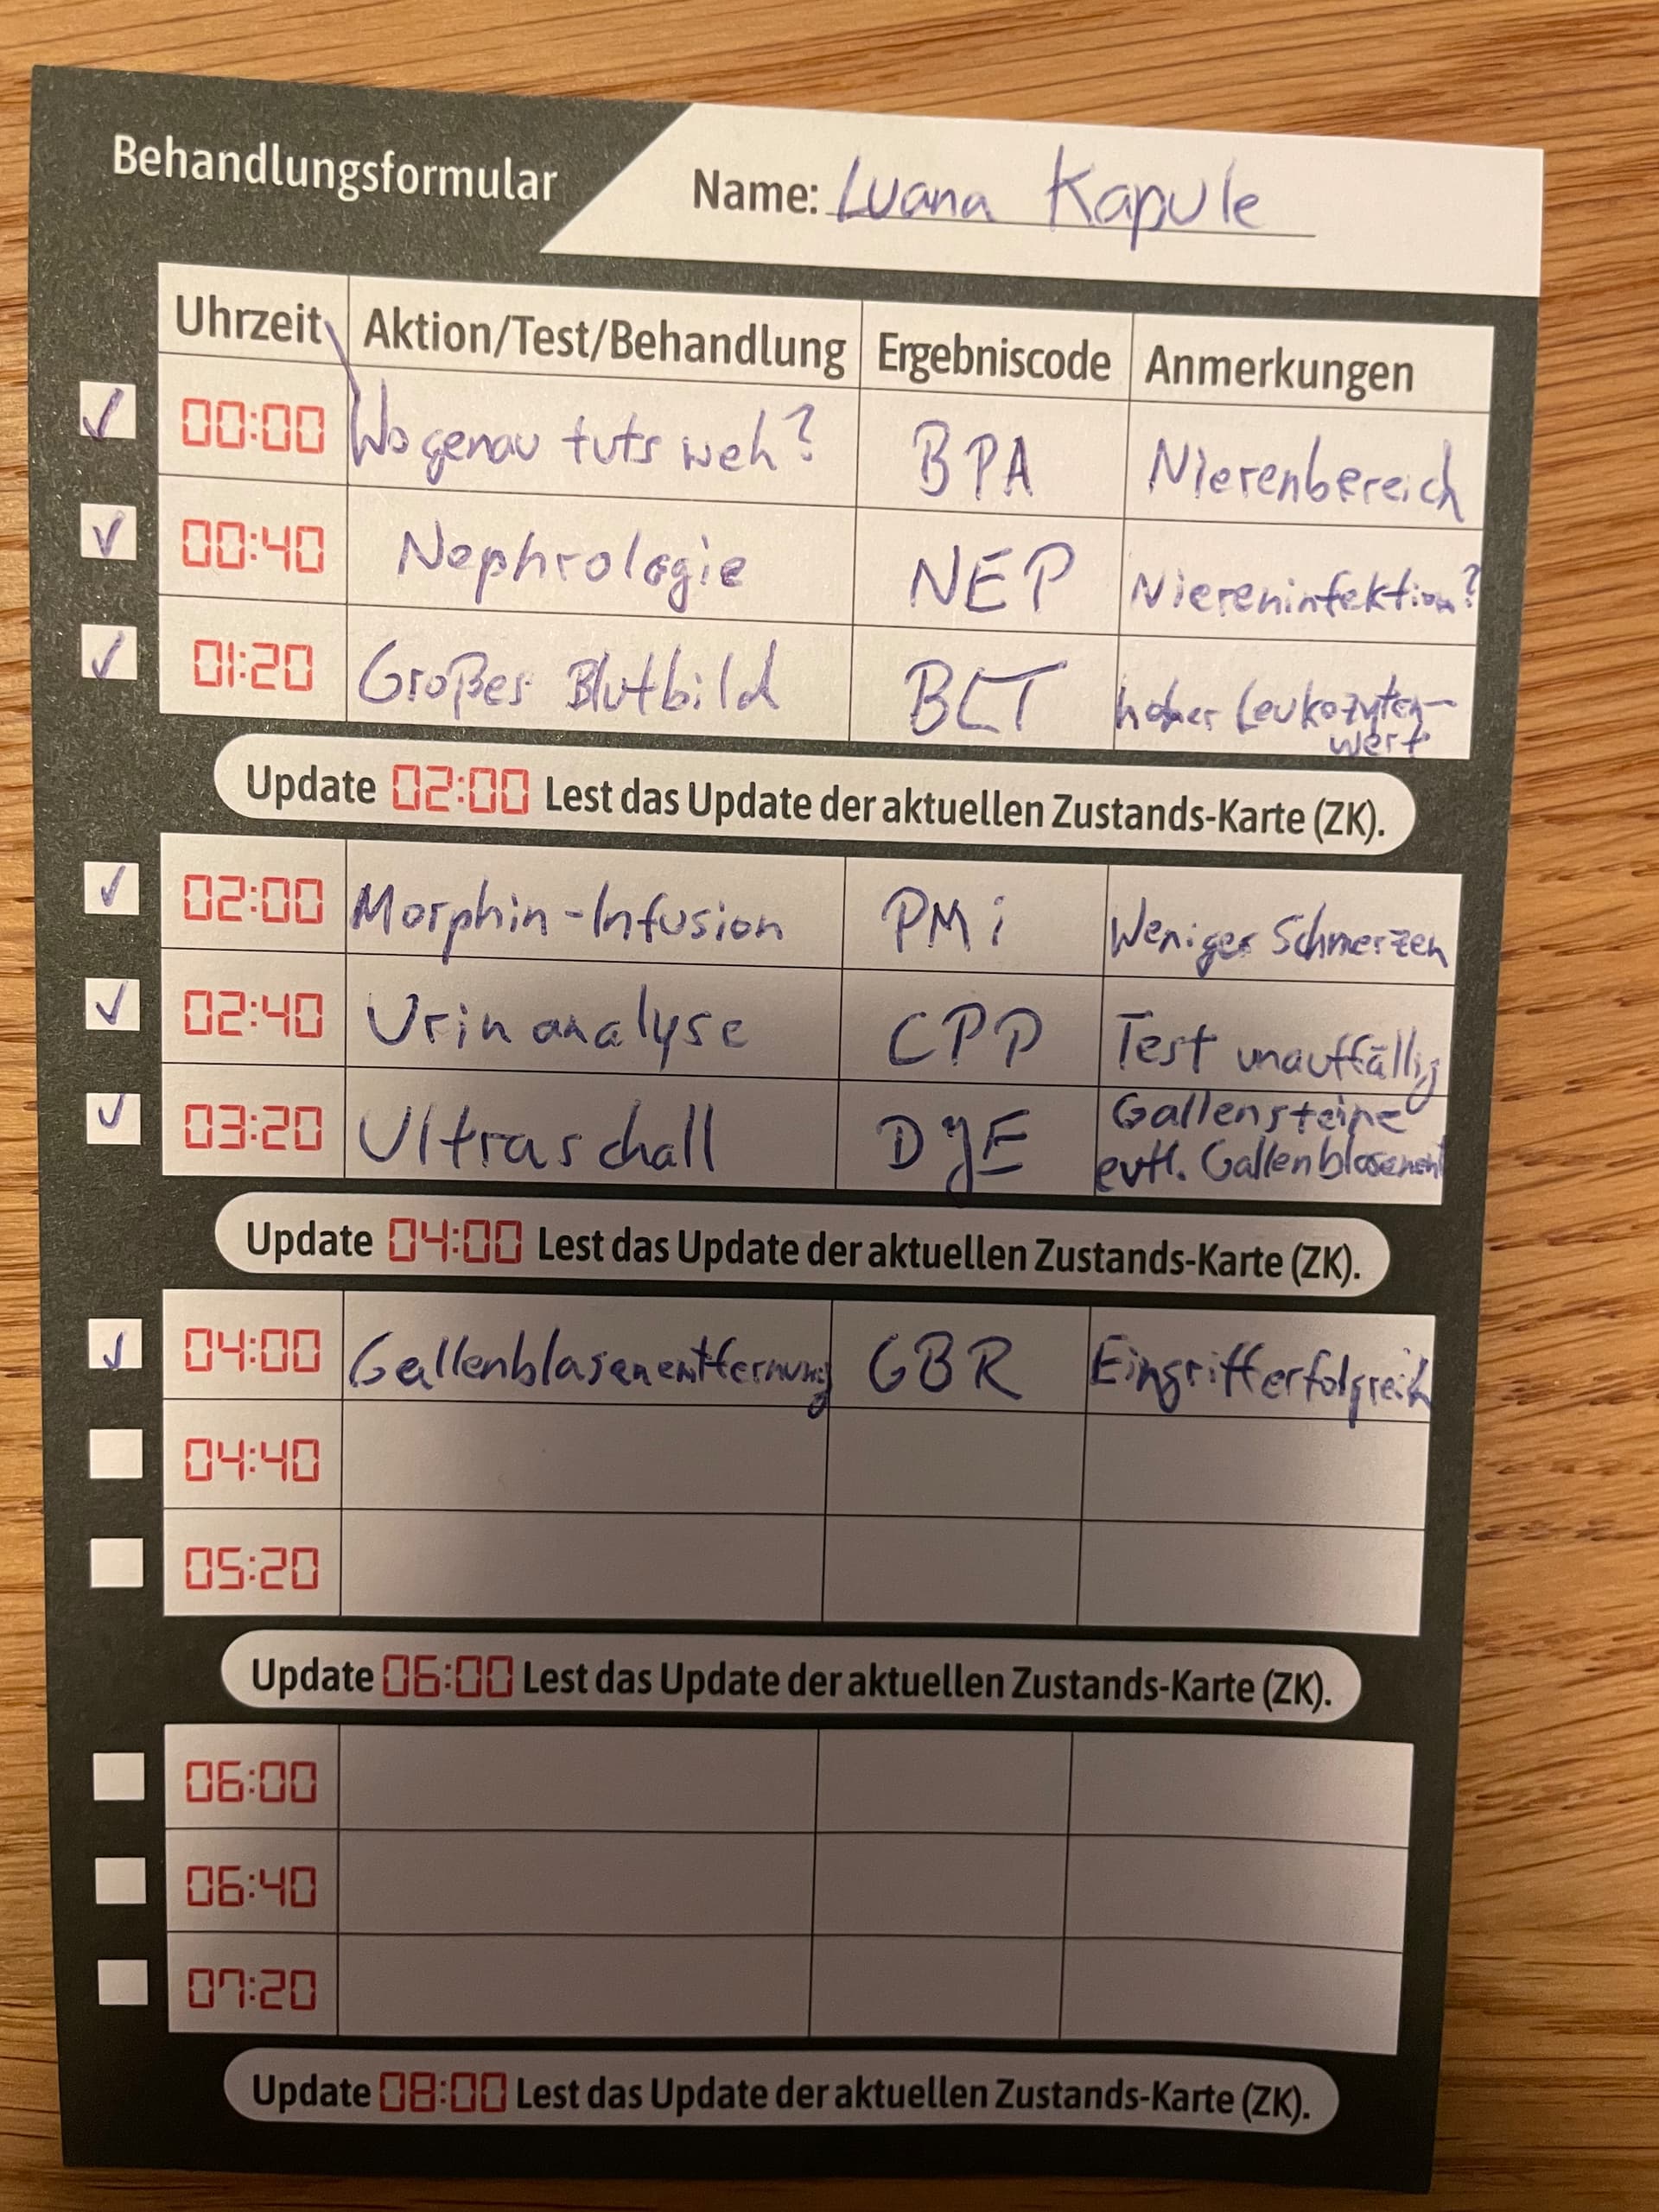 Behandlungsformular
Name: Luana Kapule
Uhrzeit Aktion/Test/Behandlung Ergebniscode Anmerkungen
00:00 Wo genau tuts weh? BPA Nierenbereich
00:40 Nephrologie NEP Niereninfektion?
01:20 Großes Blutbild BCT hoher Leukozyten-
wert
Update 02:00 Lest das Update der aktuellen Zustands-Karte (ZK).
02:00 Morphin-Infusion PMi Weniger Schmerzen
02:40 Urinanalyse CPP Test unauffällig
03:20 Ultraschall DYE Gallensteine
evtl.
Update 04:00 Lest das Update der aktuellen Zustands-Karte (ZK).
04:00 Gallenblasenentfernung GBR Eingriff erfolgreich
04:40
05:20
Update 06:00 Lest das Update der aktuellen Zustands-Karte (ZK).
06:00
06:40
07:20
Update 08:00 Lest das Update der aktuellen Zustands-Karte (ZK).